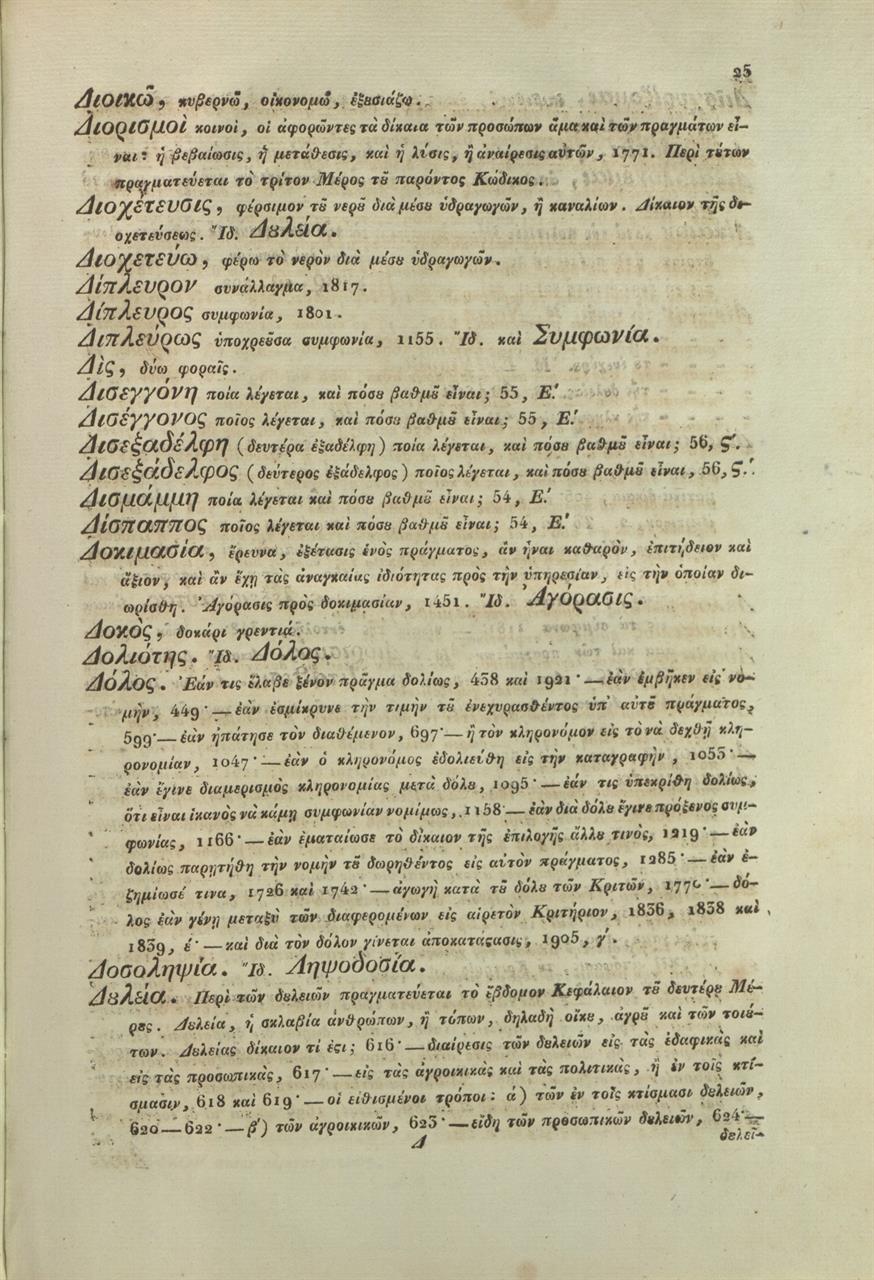 25
Διοικῶ, κυβερνῶ, οἰκονομῶ, ἐξȣσιάζω.
Διορισμοὶ κοινοὶ, οἱ ἀφορῶντες τὰ δίκαια τῶν προσώπων ἅμα καὶ τῶν πραγμάτων εἶ-
ναι: ἡ βεβαίωσις, ἡ μετάθεσις, καὶ ἡ λύσις, ἢ ἀναίρεσις αὐτῶν, 1771. Περὶ τȣ́των
πραγματεύεται τὸ τρίτον Μέρος τȣ͂ παρόντος Κώδικος.
Διοχέτευσις, φέρσιμον τȣ͂ νερȣ͂ διὰ μέσȣ ὑδραγωγῶν, ἢ καναλίων. Δίκαιον τῆς δι-
οχετεύσεως. Ἴδ. Δȣλεία.
Διοχετεύω, φέρω τὸ νερὸν διὰ μέσȣ ὑδραγωγῶν.
Δίπλευρον συνάλλαγμα, 1817.
Δίπλευρος συμφωνία, 1801.
Διπλεύρως ὑποχρεȣ͂σα συμφωνία, 1155. Ἴδ. καὶ Συμφωνία.
Δὶς, δύω φοραῖς.
Δισεγγόνη ποία λέγεται, καὶ πόσȣ βαθμȣ͂ εἶναι; 55, Ε.΄
Δισέγγονος ποῖος λέγεται, καὶ πόσȣ βαθμȣ͂ εἶναι; 55, Ε.΄
Δισεξαδέλφη (δευτέρα ἐξαδέλφη) ποία λέγεται, καὶ πόσȣ βαθμȣ͂ εἶναι; 56, ϛ΄.
Δισεξάδελφος (δεύτερος ἐξάδελφος) ποῖος λέγεται, καὶ πόσȣ βαθμȣ͂ εἶναι, 56, ϛ.΄
Δισμάμμη ποία λέγεται καὶ πόσȣ βαθμȣ͂ εἶναι; 54, Ε.΄
Δίσπαππος ποῖος λέγεται καὶ πόσȣ βαθμȣ͂ εἶναι; 54, Ε.΄
Δοκιμασία, ἔρευνα, ἐξέτασις ἑνὸς πράγματος, ἂν ἦναι καθαρὸν, ἐπιτήδειον καὶ
ἄξιον, καὶ ἂν ἔχῃ τὰς ἀναγκαίας ἰδιότητας πρὸς τὴν ὑπηρεσίαν, εἰς τὴν ὁποίαν δι-
ωρίσθη. Ἀγόρασις πρὸς δοκιμασίαν, 1451. Ἴδ. Ἀγόρασις.
Δοκὸς, δοκάρι γρεντιά.
Δολιότης. Ἴδ. Δόλος.
Δόλος. Ἐάν τις ἔλαβε ξένον πρᾶγμα δολίως, 438 καὶ 1921·—ἐὰν ἐμβῆκεν εἰς νο-
μὴν, 449·—ἐὰν ἐσμίκρυνε τὴν τιμὴν τȣ͂ ἐνεχυρασθέντος ὑπ' αὐτȣ͂ πράγματος,
599·—ἐὰν ἠπάτησε τὸν διαθέμενον, 697·—ἢ τὸν κληρονόμον εἰς τὸ νὰ δεχθῇ κλη-
ρονομίαν, 1047·—ἐὰν ὁ κληρονόμος ἐδολιεύθη εἰς τὴν καταγραφὴν, 1055·—
ἐὰν ἔγινε διαμερισμὸς κληρονομίας μετὰ δόλȣ, 1095·—ἐάν τις ὑπεκρίθη δολίως,
ὅτι εἶναι ἱκανὸς νὰ κάμῃ συμφωνίαν νομίμως, 1158·—ἐὰν διὰ δόλȣ ἔγινε πρόξενος συμ-
φωνίας, 1166·—ἐὰν ἐματαίωσε τὸ δίκαιον τῆς ἐπιλογῆς ἄλλȣ τινὸς, 1219·—ἐὰν
δολίως παρῃτήθη τὴν νομὴν τȣ͂ δωρηθέντος εἰς αὐτὸν πράγματος, 1285·—ἐὰν ἐ-
ζημίωσέ τινα, 1726 καὶ 1742·—ἀγωγὴ κατὰ τȣ͂ δόλȣ τῶν Κριτῶν, 1770·—δό-
λος ἐὰν γένῃ μεταξὺ τῶν διαφερομένων εἰς αἱρετὸν Κριτήριον, 1836, 1838 καὶ
1839, έ·—καὶ διὰ τὸν δόλον γίνεται ἀποκατάϛασις, 1905, γ΄.
Δοσοληψία. Ἴδ. Ληψοδοσία.
Δȣλεία. Περὶ τῶν δȣλειῶν πραγματεύεται τὸ ἕβδομον Κεφάλαιον τȣ͂ δευτέρȣ Μέ-
ρȣς. Δȣλεία, ἡ σκλαβία ἀνθρώπων, ἢ τόπων, δηλαδὴ οἴκȣ, ἀγρȣ͂ καὶ τῶν τοιȣ́-
των. Δȣλείας δίκαιον τί ἐϛι; 616·—διαίρεσις τῶν δȣλειῶν εἰς τὰς ἐδαφικὰς καὶ
εἰς τὰς προσωπικὰς, 617·—εἰς τὰς ἀγροικικὰς καὶ τὰς πολιτικὰς, ἢ ἐν τοῖς κτί-
σμασιν, 618 καὶ 619·—οἱ εἰθισμένοι τρόποι: ά) τῶν ἐν τοῖς κτίσμασι δȣλειῶν,
620—622·—β΄) τῶν ἀγροικικῶν, 623·—εἴδη τῶν προσωπικῶν δȣλειῶν, 624·—
Δ
δȣλεῖ-